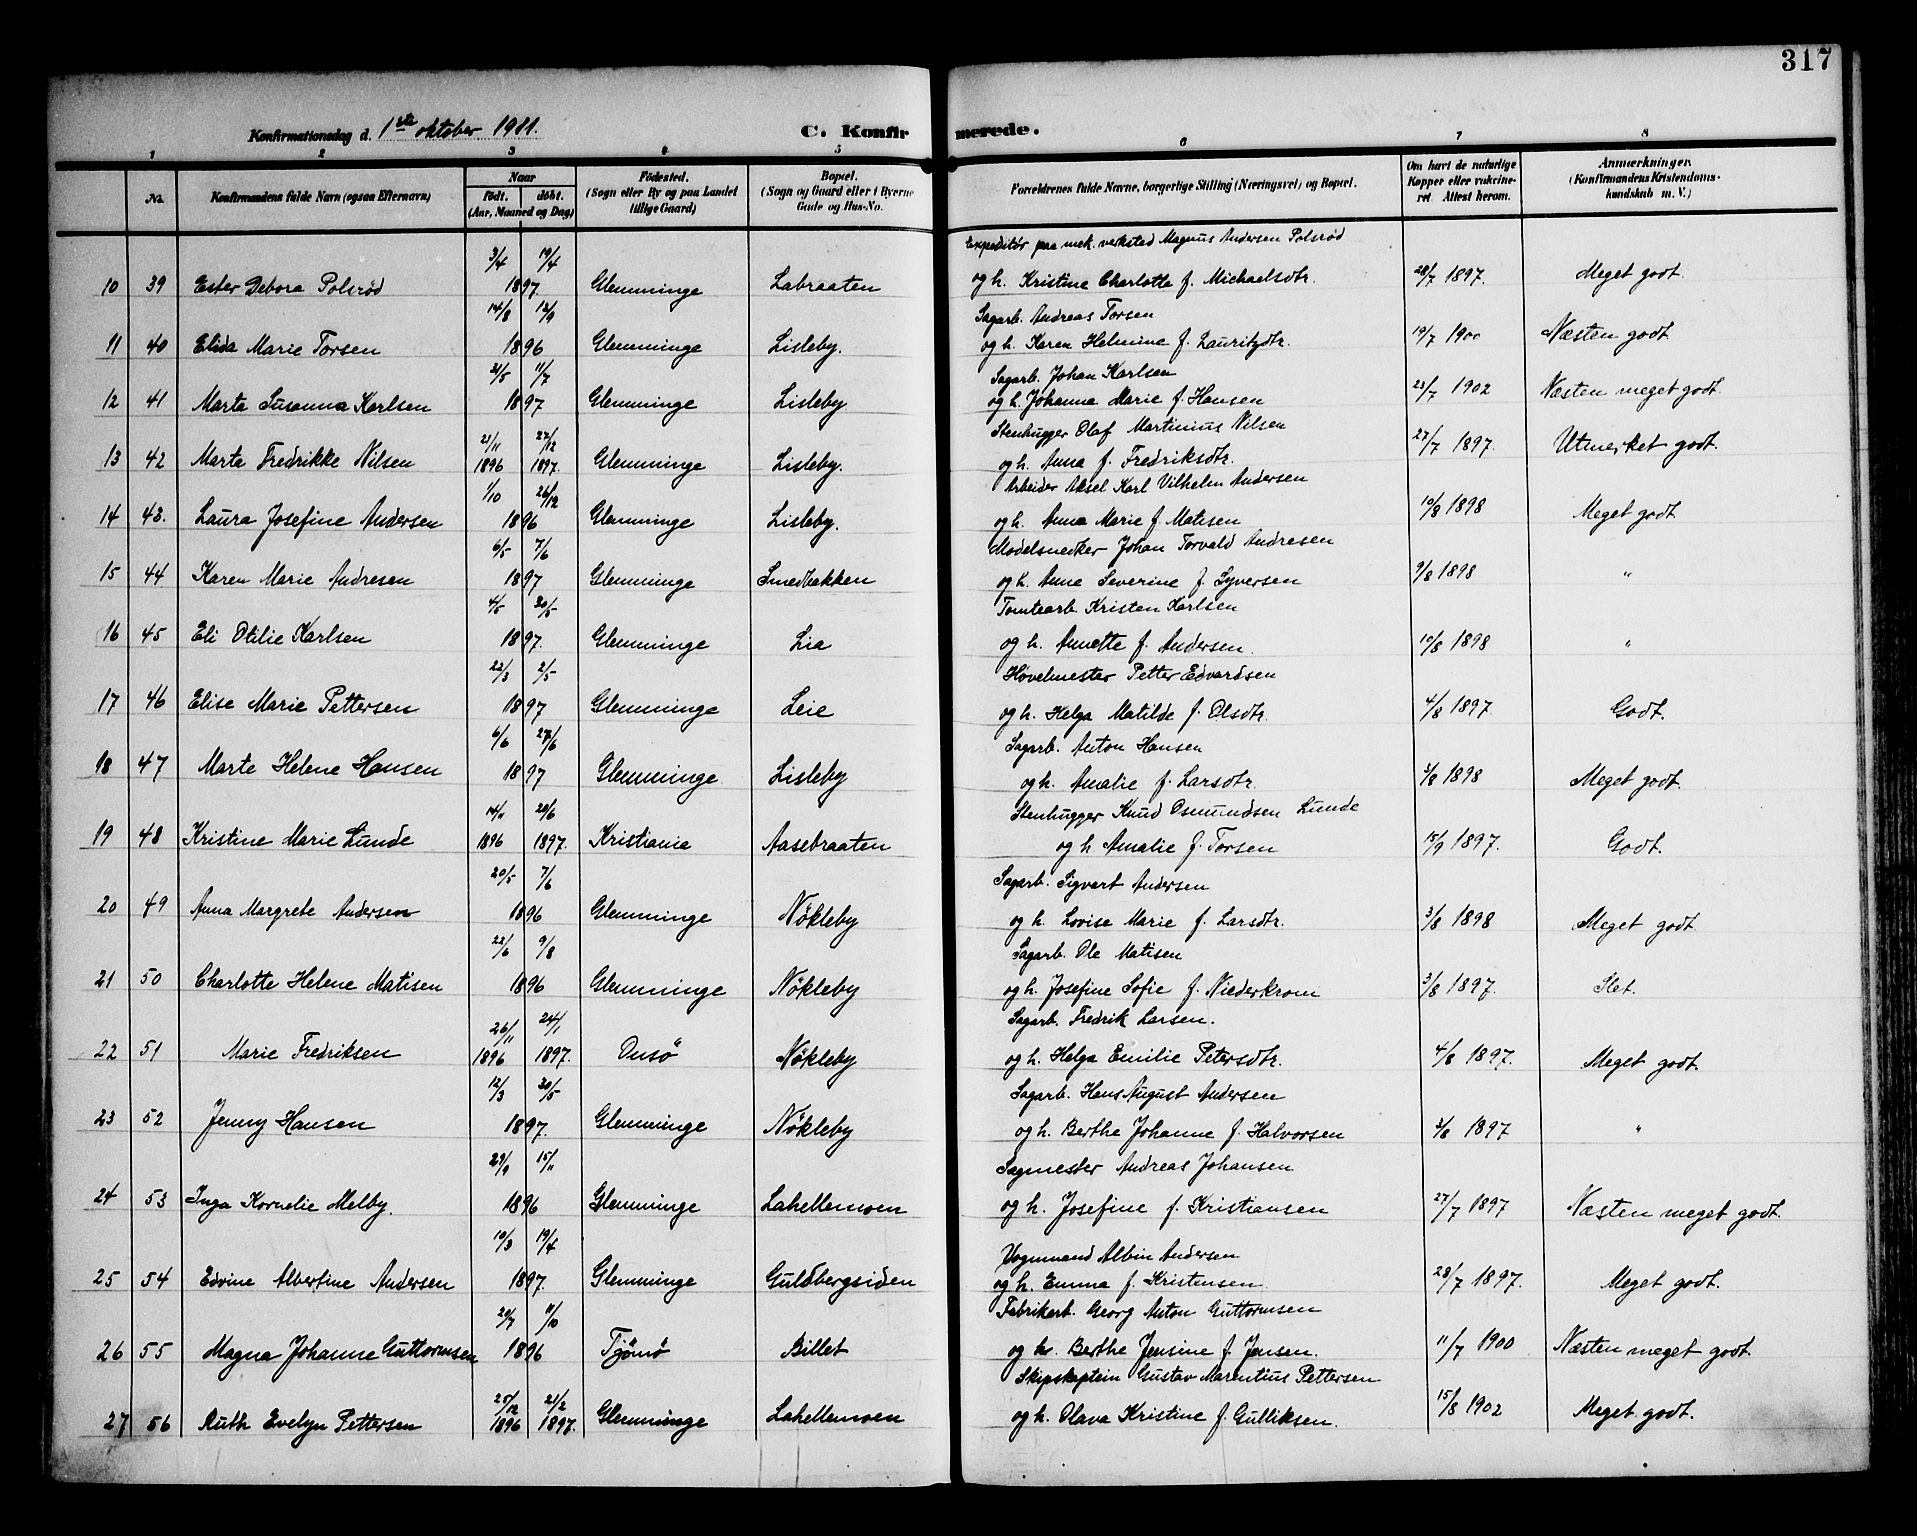 317
Konfirmationsdag d. 1ste oktober 1911. C. Konfirmerede.
1 2 3 4 5 6 7 8
No. Konfirmandens fulde Navn (ogsaa Efternavn) Naar födt. döbt. (Aar, Maaned og Dag) Födested. (Sogn eller By og paa Landet tillige Gaard) Bopæl. (Sogn og Gaard eller i Byerne Gade og Hus-No. Forældrenes fulde Navne, borgerlige Stilling (Næringsvei) og Bopæl. Om havt de naturlige Kopper eller vaccineret. Attest herom. Anmærkninger. (Konfirmandens Kristendomskundskab m. V.)
3/4 19/4 Expeditör paa mek. verksted Magnus Andersen Polsröd
10 39 Ester Debora Polsröd 1897 Glemminge Labraaten og h. Kristine Charlotte f. Michaelsdtr. 28/7 1897. Meget godt.
14/8 12/9 Sagarb. Andreas Torsen
11 40 Elida Marie Torsen 1896 Glemminge Lisleby. og h. Karen Helmine f. Lauritzdtr. 19/7 1900 Næsten godt.
31/5 11/7 Sagarb. Johan Karlsen
12 41 Marta Susanna Karlsen 1897 Glemminge Lisleby og h. Johanna Marie f. Hansen 23/7 1902 Næsten meget godt.
21/11 27/12 Stenhugger Olaf Martinius Nilsen
13 42 Marta Fredrikke Nilsen 1896 1897. Glemminge Lisleby. og h. Anna f. Fredriksdtr. 27/7 1897. Utmerket godt.
1/10 26/12 Arbeider Aksel Karl Vilhelm Andersen
14 43. Laura Josefine Andersen 1896 Glemminge Lisleby. og h. Anna Marie f. Matisen 10/8 1898 Meget godt
6/5 7/6 Modelsnedker Johan Torvald Andresen
15 44 Karen Marie Andresen 1897 Glemminge Smedbakken og h. Anna Severine f. Syversen 9/8 1898 "
4/5 30/5 Tomtearb. Kristen Karlsen
16 45 Eli Otilie Karlsen 1897. Glemminge Lia og h. Annette f. Andersen. 10/8 1898 "
22/3 2/5 Hövelmester Petter Edvardsen
17 46 Elise Marie Pettersen 1897 Glemminge Leie og h. Helga Matilde f. Olsdtr. 4/8 1897. Godt.
6/6 27/6 Sagarb. Anton Hansen
18 47 Marte Helene Hansen 1897 Glemminge Lisleby og h. Amalie f. Larsdtr. 3/8 1898 Meget godt.
14/11 20/6 Stenhugger Knud Osmundsen Lunde
19 48 Kristine Marie Lunde 1896 1897. Kristiania Aasebraaten og h Amalie f. Torsen 15/9 1897. Godt.
20/5 7/6 Sagarb. Sigvart Andersen
20 49 Anna Margrete Andersen 1896 Glemminge Nökleby og h. Lovise Marie f. Larsdtr. 3/8 1898 Meget godt
22/6 9/8 Sagarb. Ole Matisen
21 50 Charlotte Helene Matisen 1896 Glemminge Nökleby og h. Josefine Sofie f. Niederkrom 3/8 1897. Slet.
26/11 24/1 Sagarb. Fredrik Larsen.
22 51 Marie Fredriksen 1896 1897. Onsö Nökleby og h. Helga Emilie Petersdtr. 4/8 1897. Meget godt.
12/3 30/5 Sagarb. Hans August Andersen
23 52 Jenny Hansen 1897. Glemminge Nökleby og h. Berthe Johanne f. Halvorsen 3/8 1897 "
29/9 15/11 Sagmester Andreas Johansen
24 53 Inga Kornelie Melby. 1896 Glemminge Lahellemoen og h. Josefine f. Kristiansen 27/7 1897 Næsten meget godt.
10/3 19/4 Vognmand Albin Andersen
25 54 Edvine Albertine Andersen 1897. Glemminge Guldbergsiden og h. Emma f. Kristensen 28/7 1897. Meget godt.
20/7 11/10 Fabrikarb. Georg Anton Guttormsen
26 55 Magna Johanne Guttormsen 1896 Tjömö Billet og h. Berthe Jensine f. Jensen. 11/7 1900 Næsten meget godt.
25/12 21/2 Skipskaptein Gustav Marentius Pettersen
27 56 Ruth Evelyn Pettersen 1896 1897. Glemminge Lahellemoen og h. Olava Kristine f. Gulliksen. 15/8 1902 Meget godt.